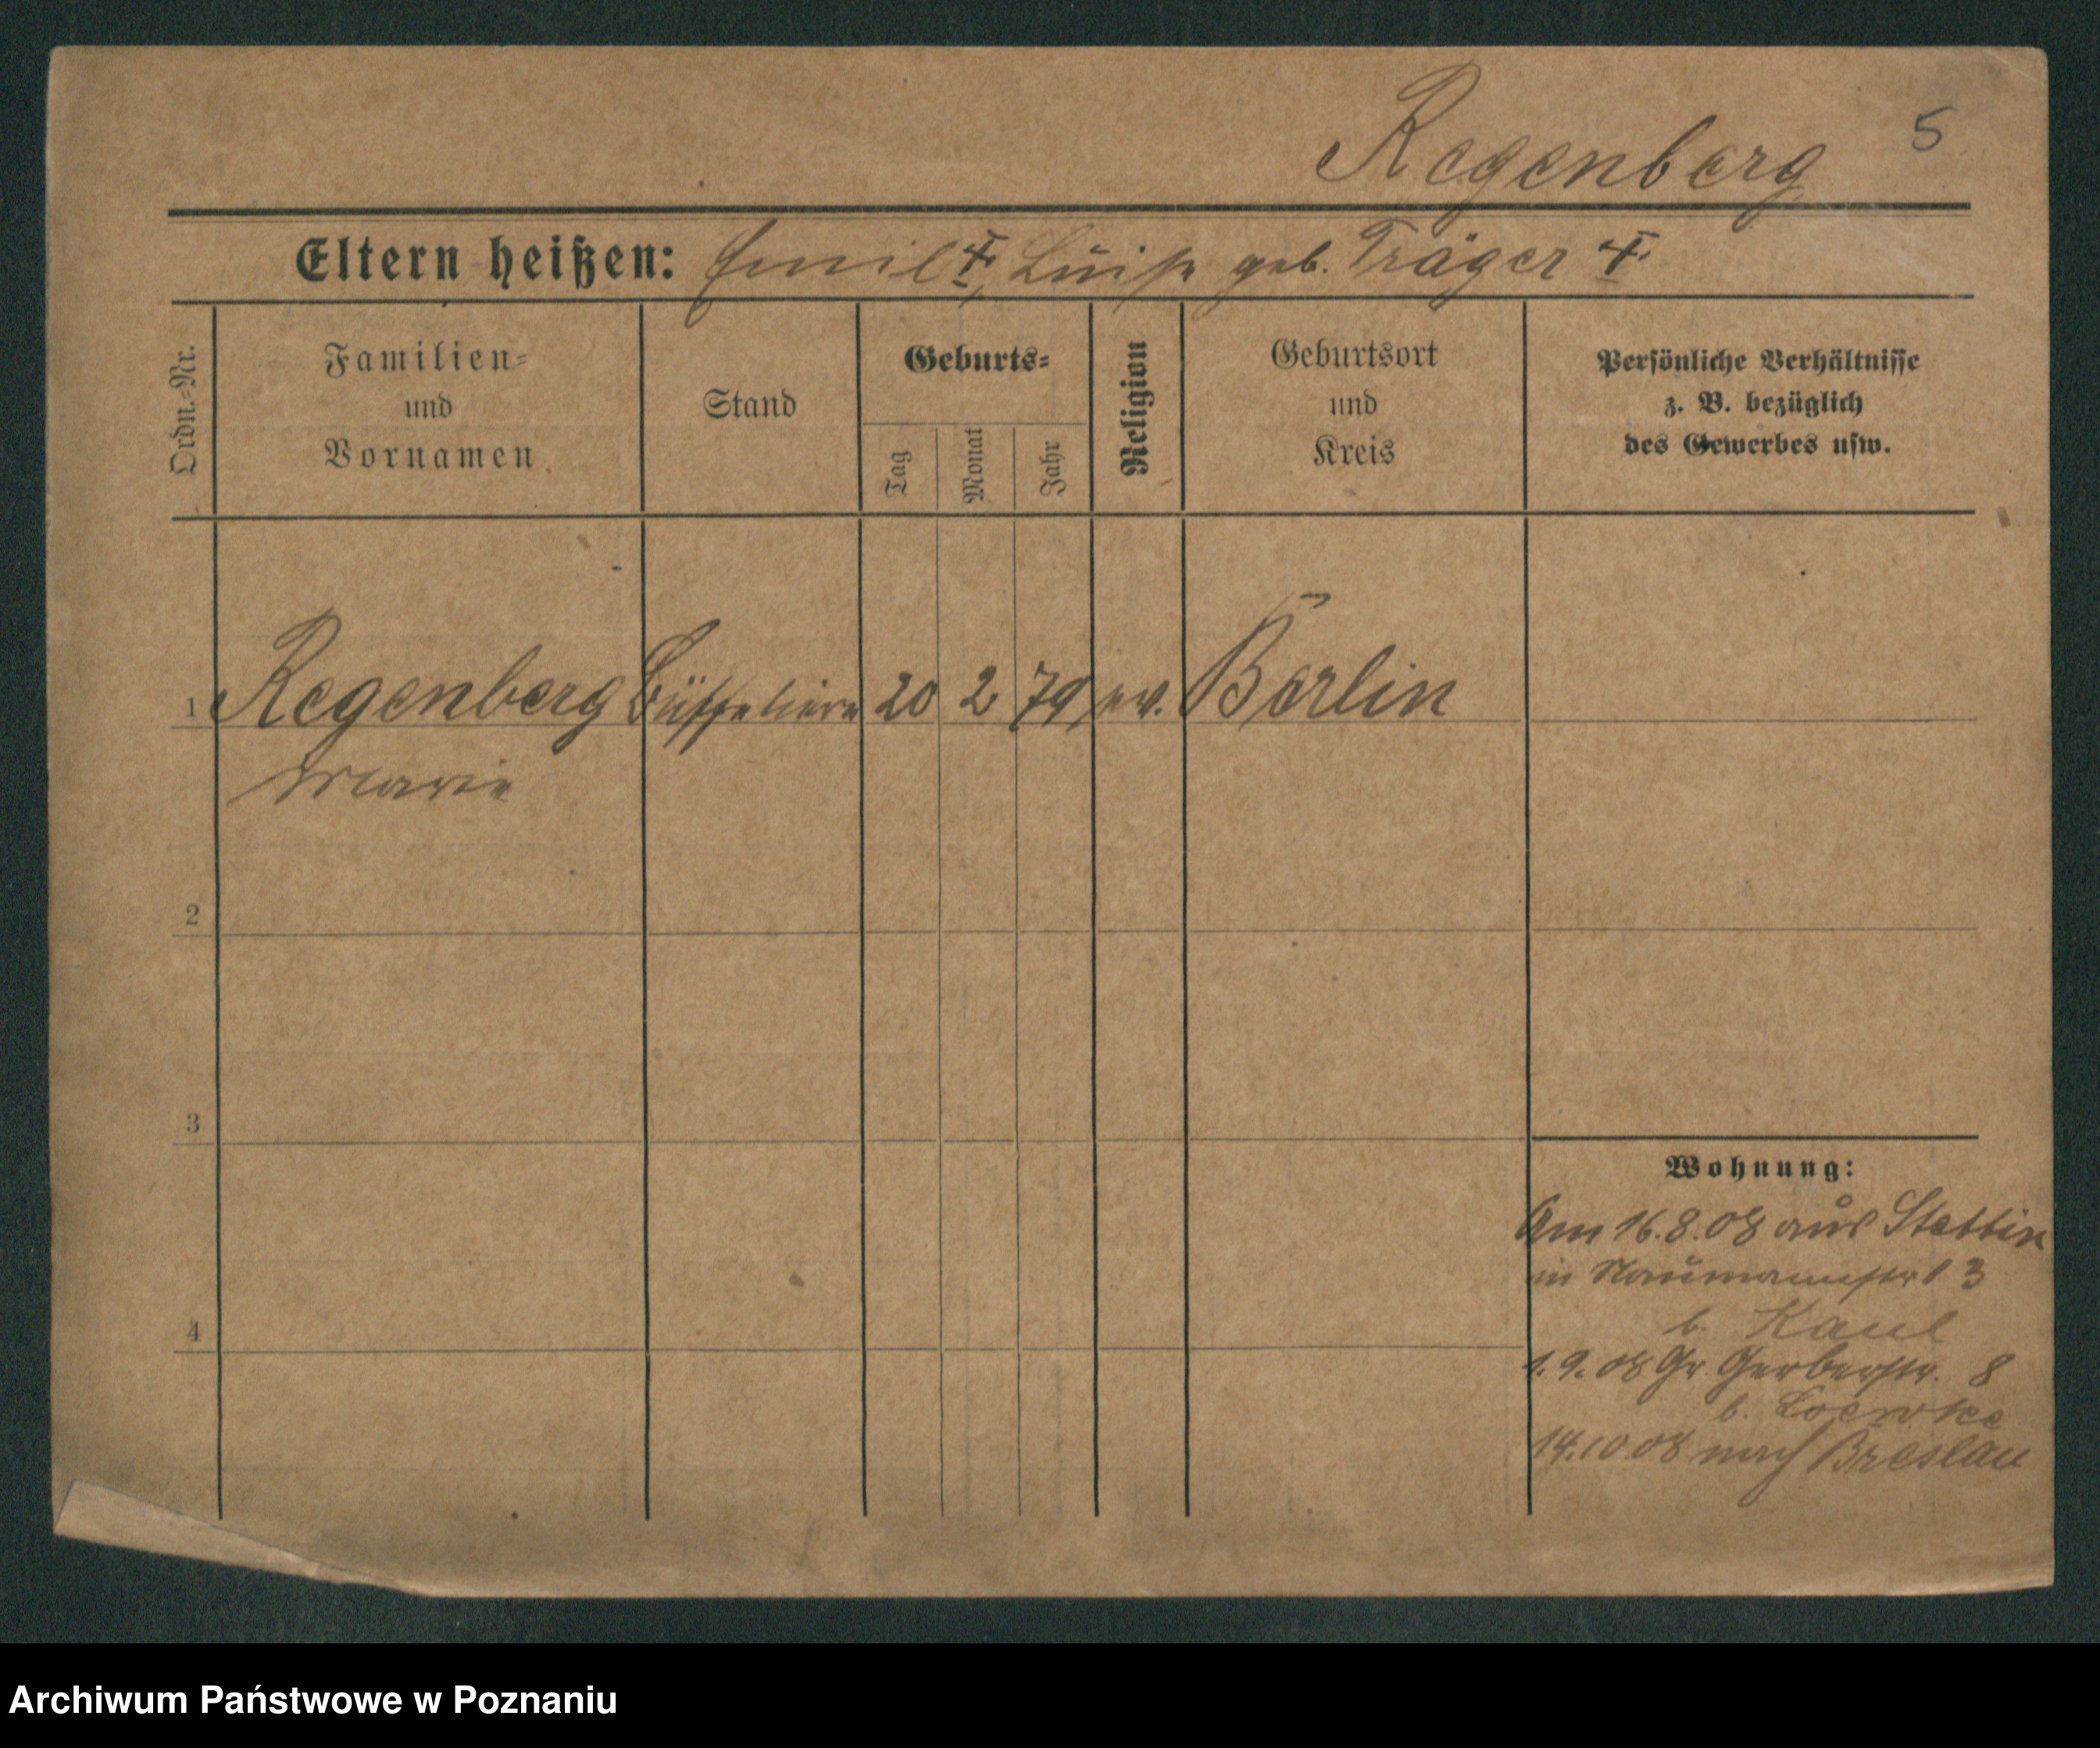 Regenberg 5
Eltern heißen: Emil †, Luise geb. Träger †.
Ordn.-Nr.
Familien-
und
Vornamen
Stand
Geburts-
Tag
Monat
Jahr
Religion
Geburtsort
und
Kreis
Persönliche Verhältnisse
z. B. bezüglich
des Gewerbes usw.
1 Regenberg Büffetiere 20 2 79 ev. Berlin
Marie
2
3
4
Wohnung:
Am 16.8.08 aus Stettin
in Naumannstr 3
b. Kaul
1.9.08 Gr. Gerberstr. 8
b. Loewke
14.10.08 nach Breslau
Archiwum Państwowe w Poznaniu